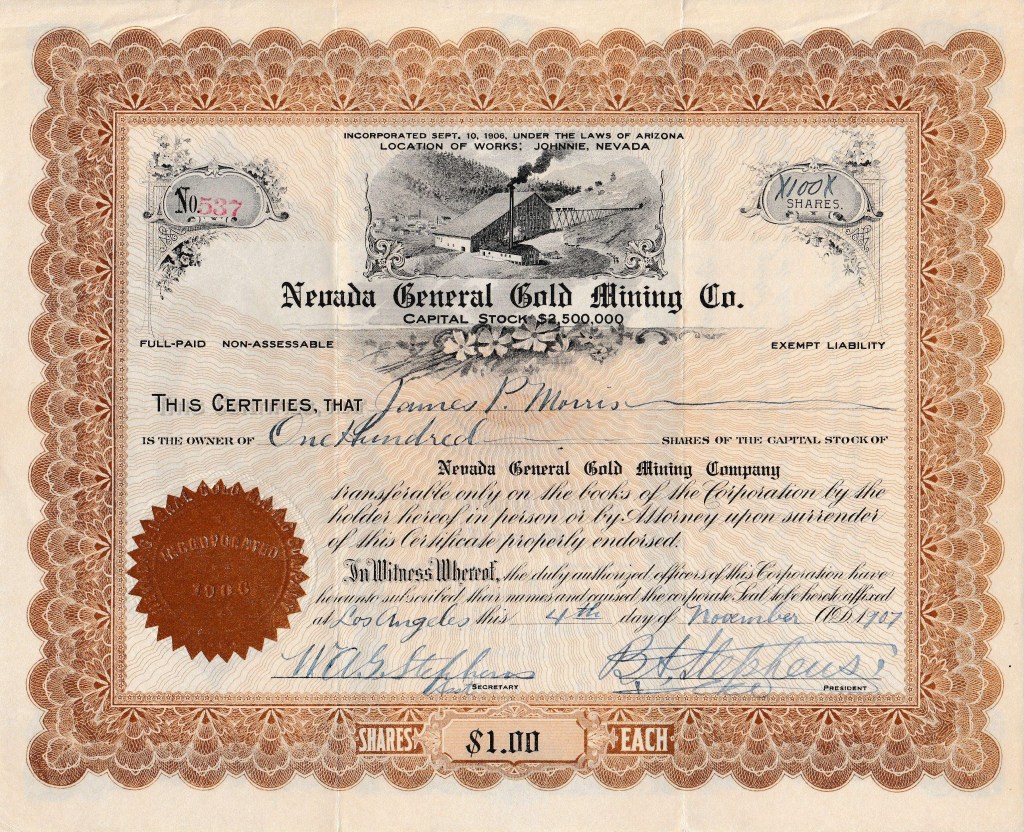 INCORPORATED SEPT. 10, 1906, UNDER THE LAWS OF ARIZONA
LOCATION OF WORKS: JOHNNIE, NEVADA
No. 537
X100X
SHARES.
Nevada General Gold Mining Co.
CAPITAL STOCK $2,500,000
FULL-PAID NON-ASSESSABLE
EXEMPT LIABILITY
THIS CERTIFIES, THAT James P. Morris
IS THE OWNER OF One Hundred SHARES OF THE CAPITAL STOCK OF
Nevada General Gold Mining Company
transferable only on the books of the Corporation by the
holder hereof in person or by Attorney upon surrender
of this Certificate properly endorsed.
In Witness Whereof, the duly authorized officers of this Corporation have
hereunto subscribed their names and caused the corporate Seal to be hereto affixed
at Los Angeles this 4th day of November A.D. 1907
INCORPORATED
1906
Stephens
SECRETARY
Stephens
PRESIDENT
SHARES $1.00 EACH